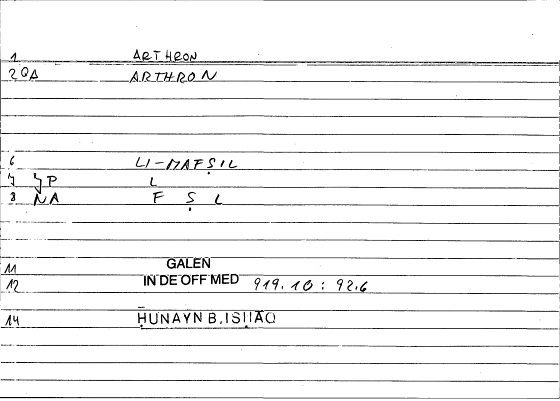 1 ARTHRON
2 QA ARTHRON
6 LI-MAFṢIL
7 JP L
8 NA F Ṣ L
11 GALEN
12 IN DE OFF MED 919.10 : 92.6
14 ḤUNAYN B. ISḤĀQ